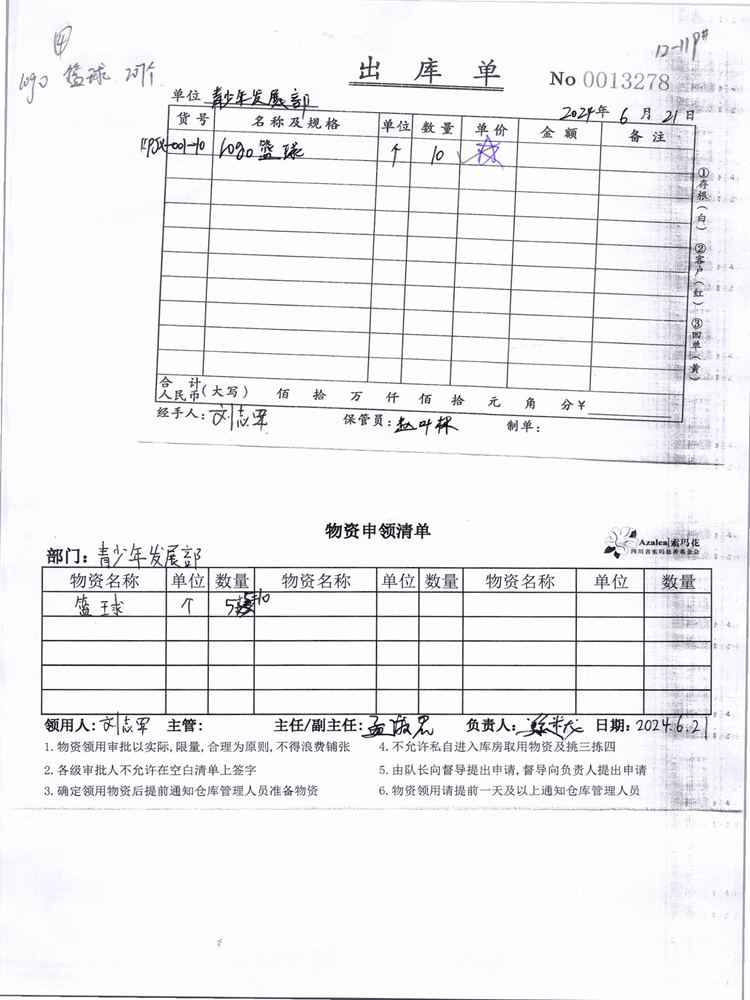 ④
logo 篮球 20个
12-119#
出 库 单
No 0013278
单位 青少年发展部
2024年 6 月 21 日
货号 名称及规格 单位 数量 单价 金额 备注
logo篮球 个 10
①存根(白) ②客户(红) ③回单(黄)
合计人民币(大写) 佰 拾 万 仟 佰 拾 元 角 分¥
经手人:刘志军 保管员:赵叶林 制单:
物资申领清单
Azalea|索玛花
四川省索玛慈善基金会
部门:青少年发展部
物资名称 单位 数量 物资名称 单位 数量 物资名称 单位 数量
篮球 个 10
领用人:刘志军 主管: 主任/副主任: 负责人: 日期:2024.6.21
1.物资领用审批以实际,限量,合理为原则,不得浪费铺张 4.不允许私自进入库房取用物资及挑三拣四
2.各级审批人不允许在空白清单上签字 5.由队长向督导提出申请,督导向负责人提出申请
3.确定领用物资后提前通知仓库管理人员准备物资 6.物资领用请提前一天及以上通知仓库管理人员